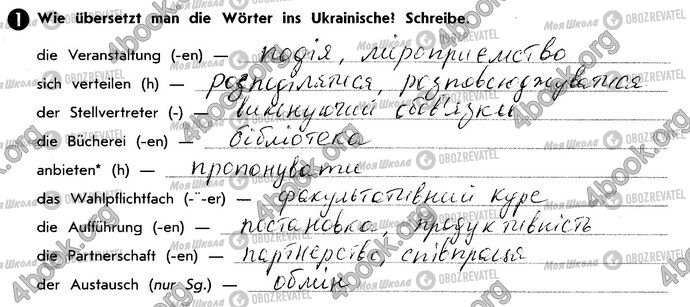 1 Wie übersetzt man die Wörter ins Ukrainische? Schreibe.
die Veranstaltung (-en) — подія, міроприємство
sich verteilen (h) — розподілятися, розповсюджуватися
der Stellvertreter (-) — виконуючий обов'язки
die Bücherei (-en) — бібліотека
anbieten* (h) — пропонувати
das Wahlpflichtfach (-¨-er) — факультативний курс
die Aufführung (-en) — постановка, продуктивність
die Partnerschaft (-en) — партнерство, співпраця
der Austausch (nur Sg.) — обмін
4book.org
Моя Школа OBOZREVATEL